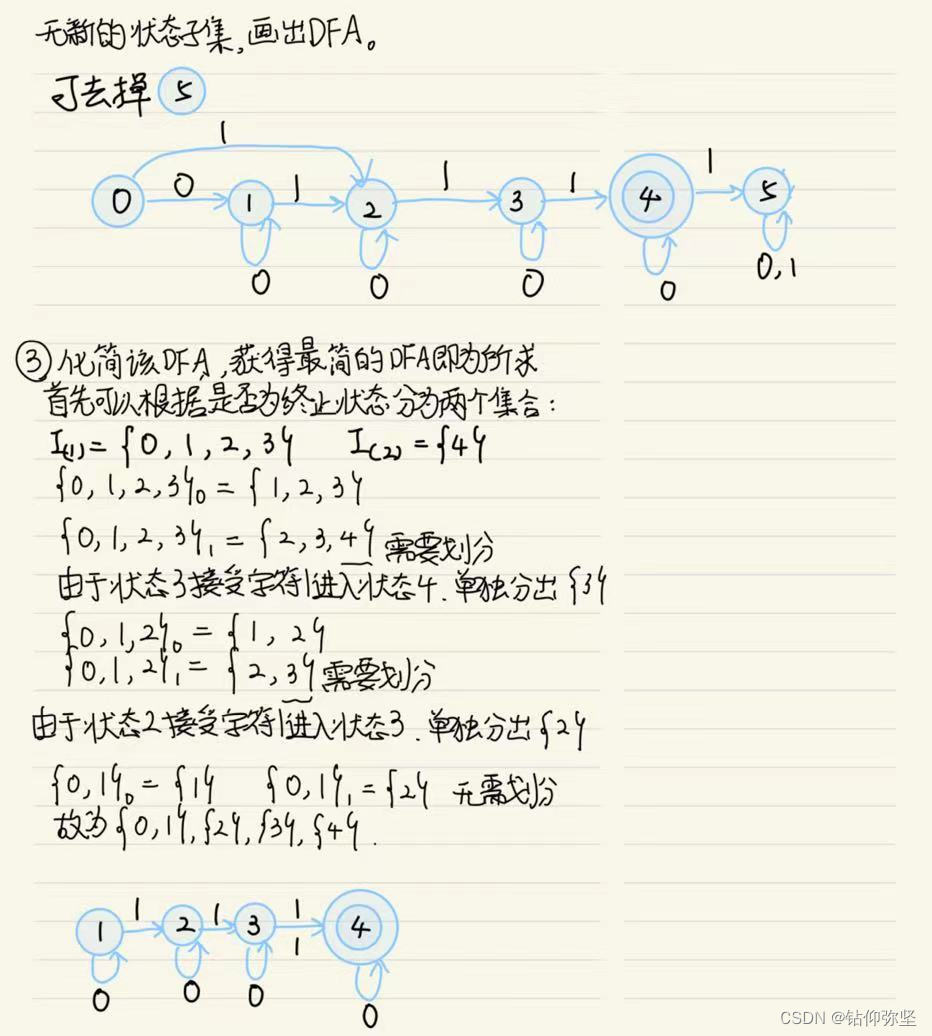 无新的状态子集,画出DFA。
可去掉 5
1
0 0 1 1 2 1 3 1 4 1 5
0 0 0 0 0,1
③化简该DFA,获得最简的DFA即为所求
首先可以根据是否为终止状态分为两个集合:
I(1)={0,1,2,3} I(2)={4}
{0,1,2,3}₀={1,2,3}
{0,1,2,3}₁={2,3,4}需要划分
由于状态3接受字符1进入状态4.单独分出{3}
{0,1,2}₀={1,2}
{0,1,2}₁={2,3}需要划分
由于状态2接受字符1进入状态3.单独分出{2}
{0,1}₀={1} {0,1}₁={2} 无需划分
故为{0,1},{2},{3},{4}.
1 1 1
1 2 3 4
1
0 0 0 0
CSDN @钻仰弥坚